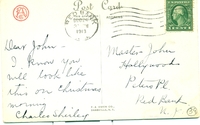 Post Card
1913
Dear John -
I know you
will look like
this on Christmas
morning
Charles Shirley
Master John
Hollywood
Peters Pl.
Red Bank
N. J.